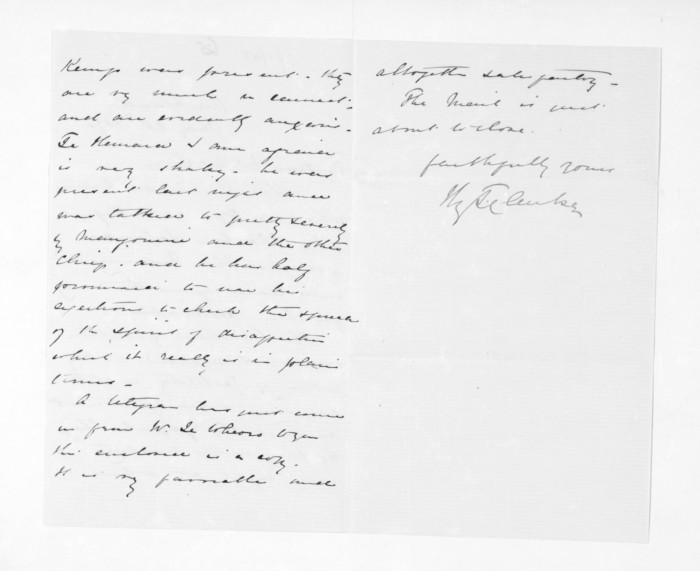 Kemp were present. They
are very much in earnest
and are evidently anxious.
Te Hemara I am afraid
is very shaky. he was
present last night and
was talked to pretty severely
by and the other
Chiefs. and he has half
promised to use his
exertions to check the spread
of the spirit of disaffection
which it really is in plain
terms.
A telegram has just come
in from W.
the enclosed is a copy.
It is very favorable and
altogether satisfactory.
The Mail is just
about to close.
faithfully yours
Hy T. Clarke